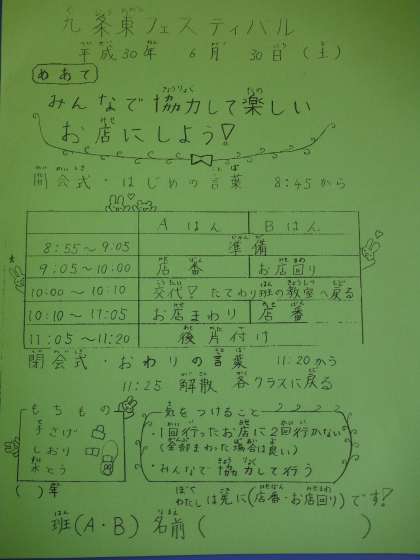 九条東フェスティバル
平成30年 6月 30日(土)
めあて
みんなで協力して楽しい
お店にしよう!
開会式・はじめの言葉 8:45から
Aはん Bはん
8:55〜9:05 準備
9:05〜10:00 店番 お店回り
10:00〜10:10 交代! たてわり班の教室へ戻る
10:10〜11:05 お店まわり 店番
11:05〜11:20 後片付け
閉会式・おわりの言葉 11:20から
11:25 解散 各クラスに戻る
もちもの
手さげ
しおり
水とう
気をつけること
・1回行ったお店に2回行かない
(全部まわった場合は良い)
・みんなで協力して行う
ぼく
わたしは先に(店番・お店回り)です!
( )年
班(A・B) 名前( )